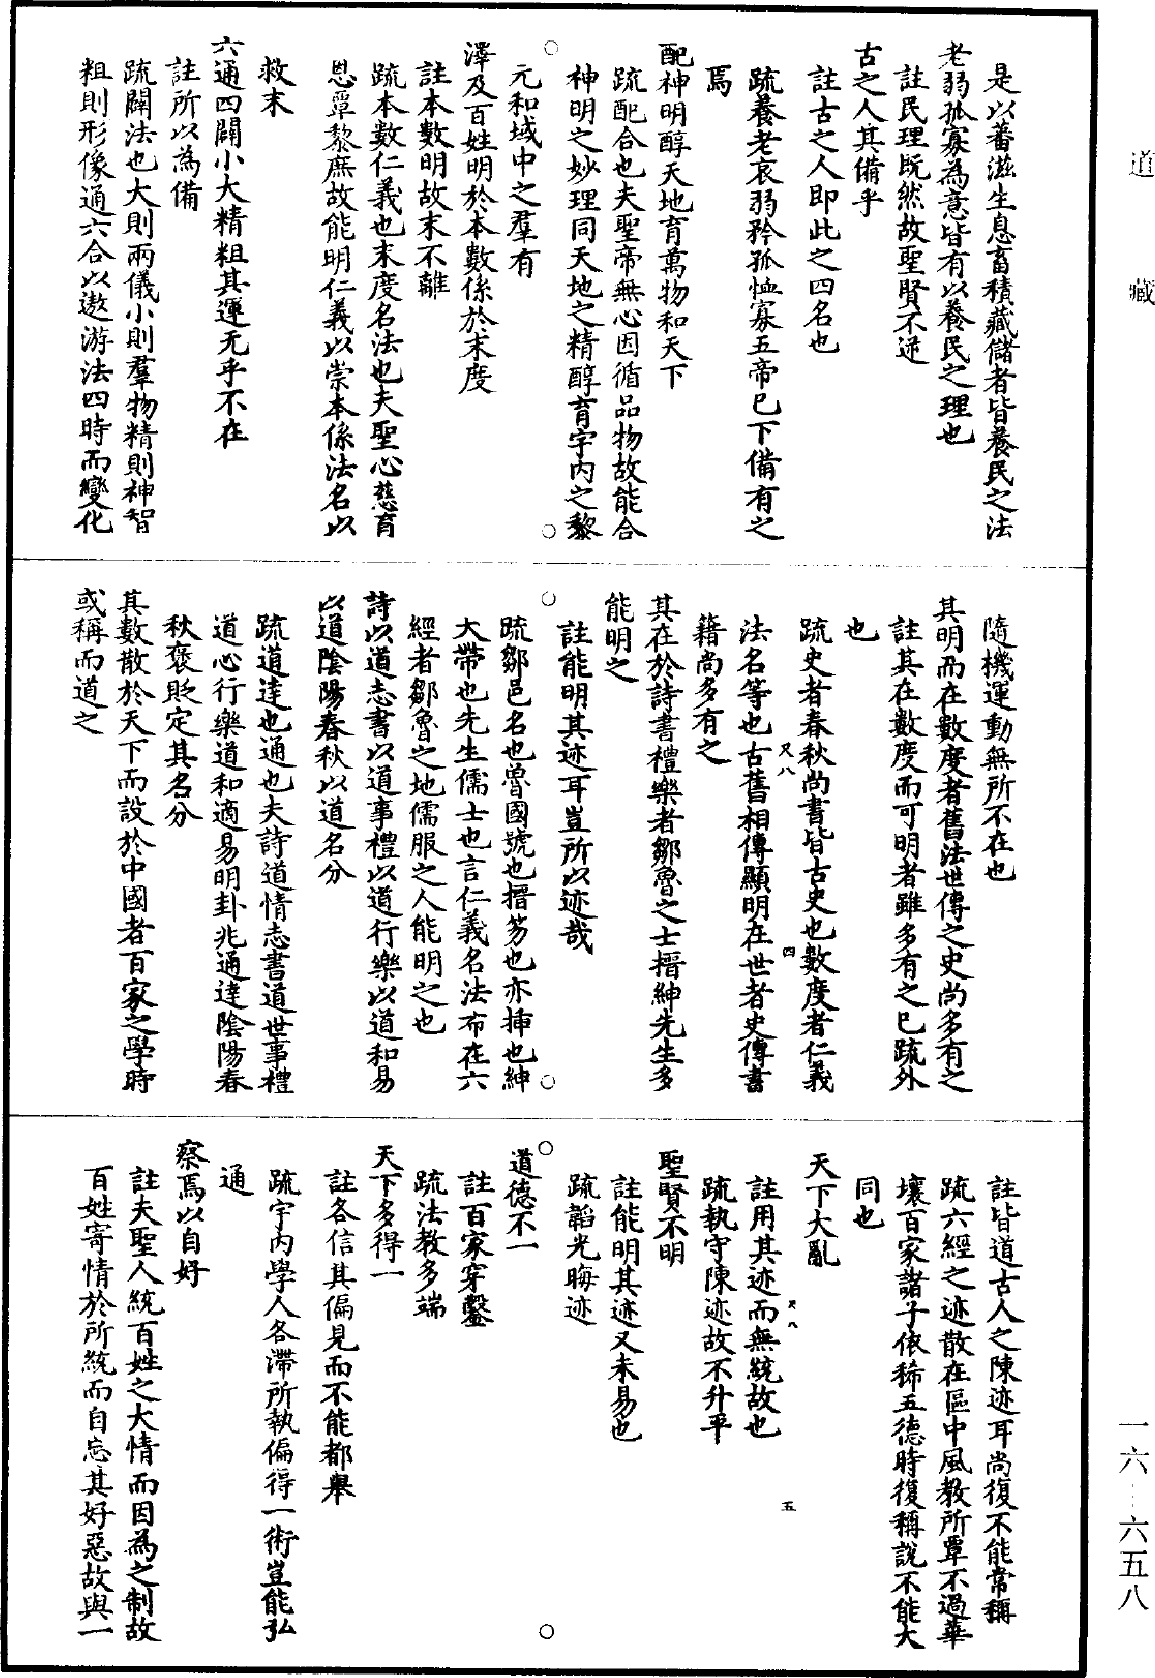 道藏
是以蕃滋生息畜積藏儲者皆養民之法
老弱孤寡為意皆有以養民之理也
註民理既然故聖賢不逆
古之人其備乎
註古之人即此之四名也
疏養老哀弱矜孤恤寡五帝已下備有之
焉
配神明醇天地育萬物和天下
疏配合也夫聖帝無心因循品物故能合
神明之妙理同天地之精醇育宇內之黎
元和域中之羣有
澤及百姓明於本數係於末度
註本數明故末不離
疏本數仁義也末度名法也夫聖心慈育
恩覃黎庶故能明仁義以崇本係法名以
救末
六通四闢小大精粗其運无乎不在
註所以為備
疏闢法也大則兩儀小則羣物精則神智
粗則形像通六合以遨游法四時而變化
隨機運動無所不在也
其明而在數度者舊法世傳之史尚多有之
註其在數度而可明者雖多有之已疏外
也
疏史者春秋尚書皆古史也數度者仁義
尺八 四
法名等也古舊相傳顯明在世者史傳書
籍尚多有之
其在於詩書禮樂者鄒魯之士搢紳先生多
能明之
註能明其迹耳豈所以迹哉
疏鄒邑名也魯國號也搢笏也亦插也紳
大帶也先生儒士也言仁義名法布在六
經者鄒魯之地儒服之人能明之也
詩以道志書以道事禮以道行樂以道和易
以道陰陽春秋以道名分
疏道達也通也夫詩道情志書道世事禮
道心行樂道和適易明卦兆通達陰陽春
秋褒貶定其名分
其數散於天下而設於中國者百家之學時
或稱而道之
註皆道古人之陳迹耳尚復不能常稱
疏六經之迹散在區中風教所覃不過華
壤百家諸子依稀五德時復稱說不能大
同也
天下大亂
尺八 五
註用其迹而無統故也
疏執守陳迹故不升平
聖賢不明
註能明其迹又未易也
疏韜光晦迹
道德不一
註百家穿鑿
疏法教多端
天下多得一
註各信其偏見而不能都舉
疏宇內學人各滯所執偏得一術豈能弘
通
察焉以自好
註夫聖人統百姓之大情而因為之制故
百姓寄情於所統而自忘其好惡故與一
一六—六五八